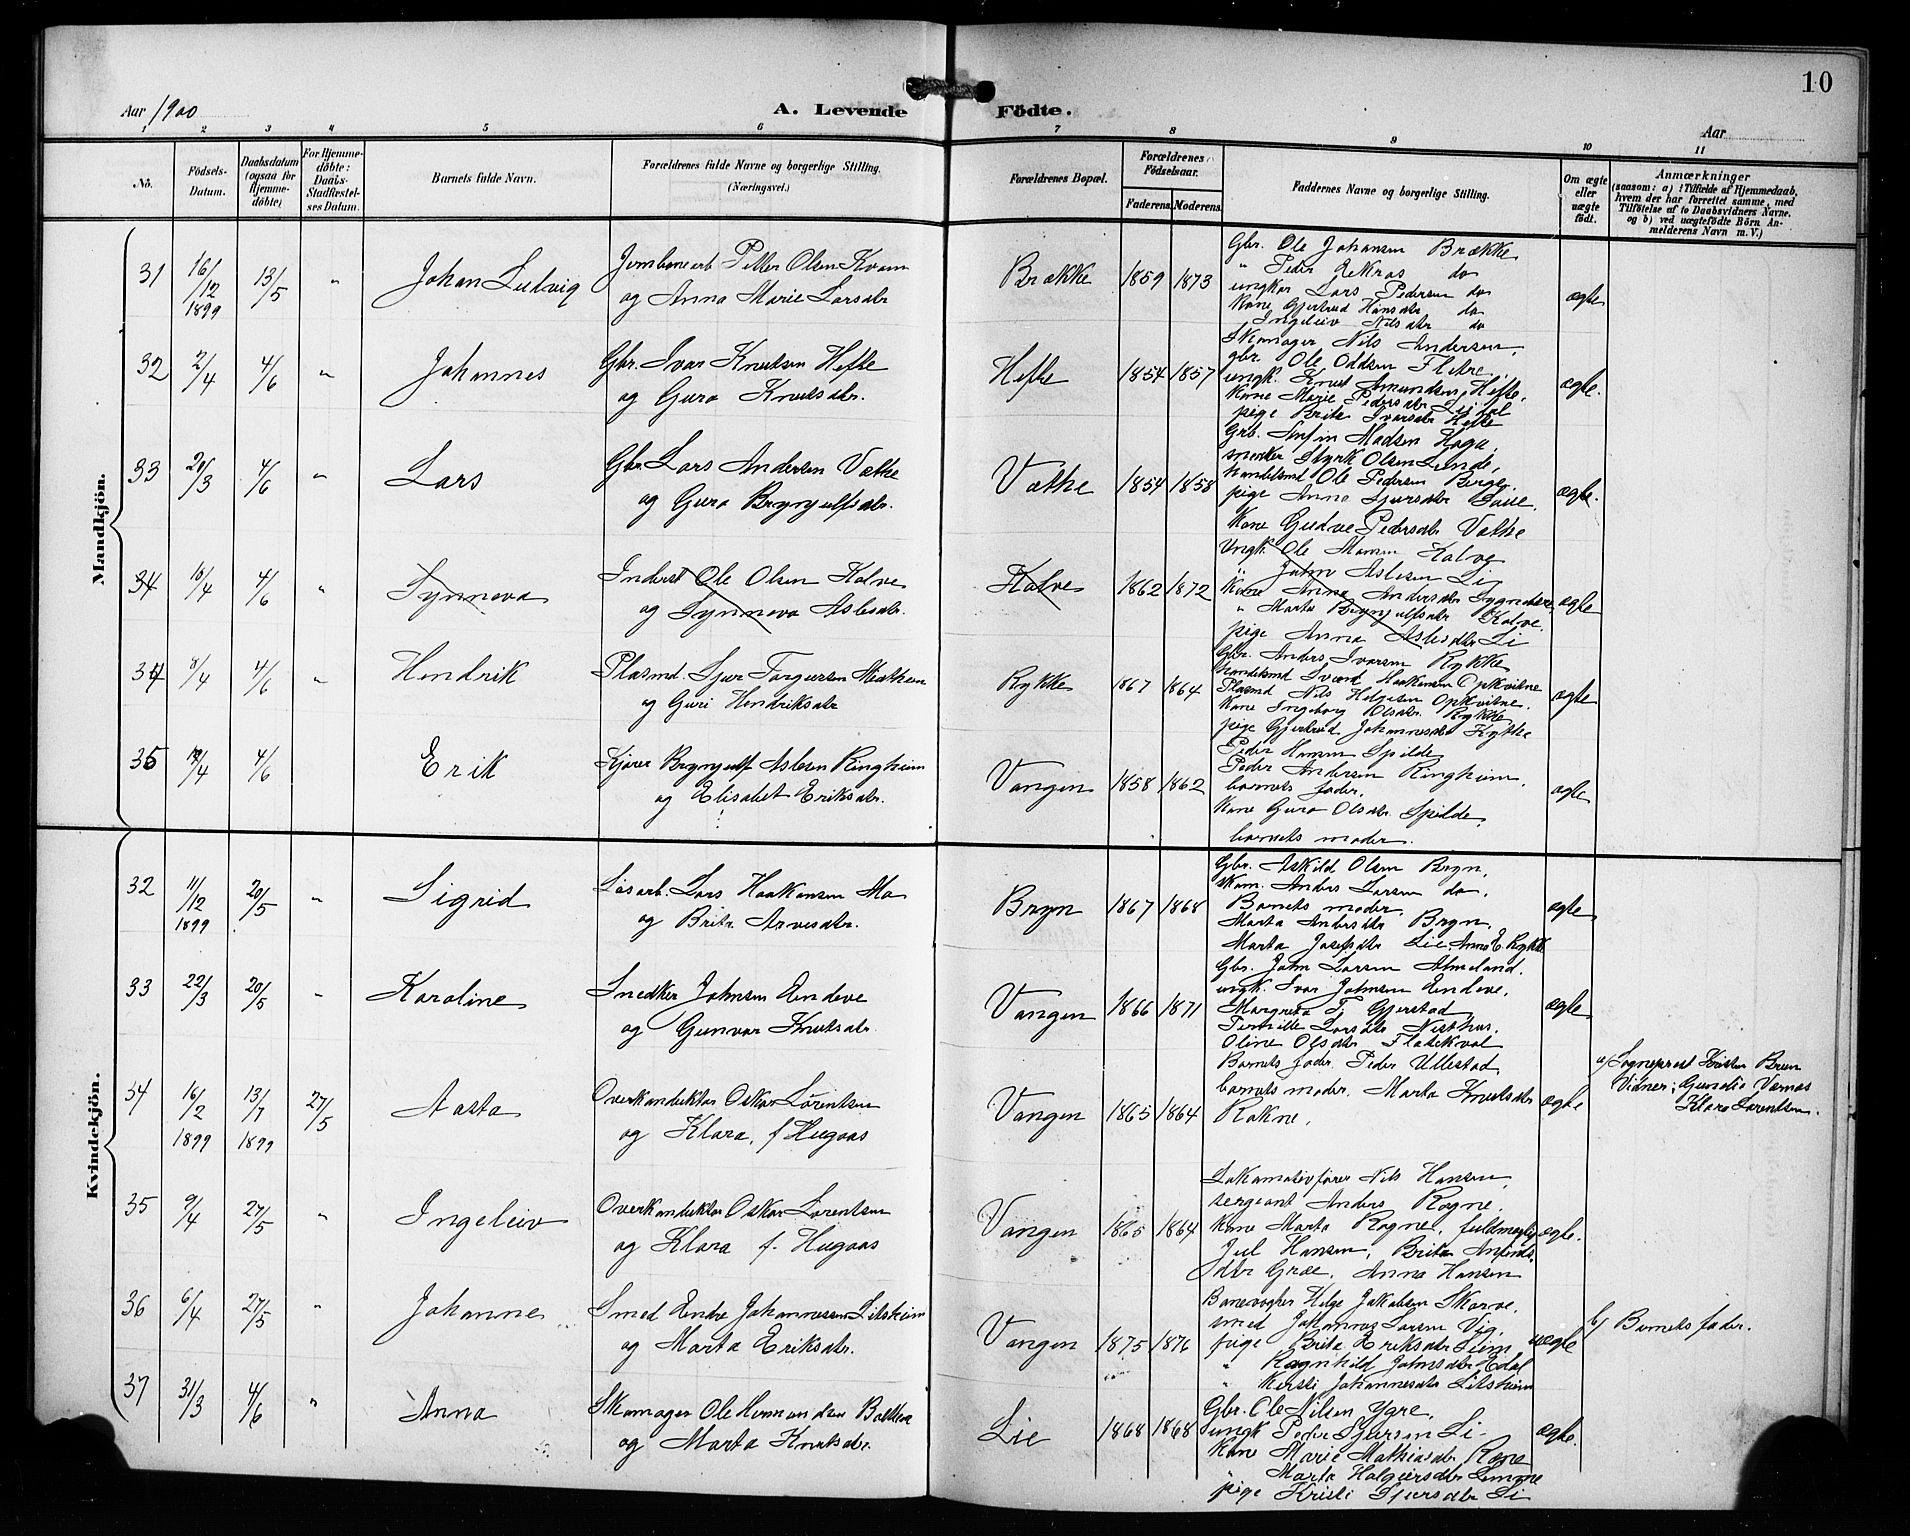 10
Aar 1900
A. Levende Födte.
Aar
1 2 3 4 5 6 7 8 9 10 11
No.
Födsels-Datum.
Daabsdatum (ogsaa for Hjemme-döbte)
For Hjemme-döbte: Daabs-Stadfæstel-ses Datum.
Barnets fulde Navn.
Forældrenes fulde Navne og borgerlige Stilling.
(Næringsvei.)
Forældrenes Bopæl.
Forældrenes Födselsaar.
Faderens. Moderens.
Faddernes Navne og borgerlige Stilling.
Om ægte eller uægte födt.
Anmærkninger
(saasom: a) i Tilfælde af Hjemmedaab, hvem der har forrettet samme, med Tilföielse af to Daabsvidners Navne. og b) ved uægtefödte Börn An-melderens Navn m. V.)
Mandkjön.
31 16/12 1899 13/5 " Johan Ludvig
Jernbanearb Petter Olsen Kvam
og Anna Marie Larsdtr
Brække 1859 1873
Gbr. Ole Johansen Brække
" Peder do
ungkar Lars Pedersen do
Kone Gjertrud Hansdtr do
Ingeleiv Nilsdtr do
ægte
32 2/4 4/6 " Johannes
Gbr. Ivar Knutsen Hefte
og Guro Knutsdtr.
Hefte 1854 1857
Skomager Nils Andersen,
gbr. Ole Oddsen Fletre,
ungk. Knut Amundsen Hefte,
Kone Marie Pedersdtr
pige Brita Ivarsdtr Hefte
ægte.
33 20/3 4/6 " Lars
Gbr Lars Andersen Væthe
og Guro Brynjulfsdtr.
Væthe 1854 1858
Grb. Anfin Madsen Haga,
snedker Styrk Olsen Lunde,
handelsmd Ole Pedersen Berge,
pige Anna Sjursdtr
Kone Gudve Pedersdtr Væthe
ægte.
34 10/4 4/6 " Synneva
Inderst Ole Olsen Kalve
og Synneva Aslesdtr.
Kalve 1862 1872
Ungk. Ole Kalve
" John Aslesen Li
Kone Anna Andersdtr
" Marta Brynjulfsdtr Kalve.
pige Anna Aslesdtr Li
ægte
34 8/4 4/6 " Hendrik
Plasmd. Sjur Torgersen
og Guri Hendriksdtr
Rykke 1867 1864
Gbr. Anders Ivarsen Rykke
Handelsmd Haakonsen Opkvitne
Plasmd Nils Helgesen Opkvitne.
Kone Ingeborg Olsdtr. Rykke
pige Gjertrud Johannesdtr Rykke
ægte
35 /4 4/6 Erik
Kjører Brynjulf Aslesen Ringheim
og Elisabet Eriksdtr.
Vangen 1858 1862
Peder Hansen Spilde
Peder Andersen Ringheim,
barnets fader,
Kone Guro Olsdtr. Spilde,
barnets moder.
ægte
Kvindekjön.
32 11/12 1899 20/5 " Sigrid
Løsarb. Lars Haakonsen Mo
og Brita Arvesdtr.
Bryn 1867 1868
Gbr. Askild Olsen Bryn,
skom. Anders Larsen do,
Barnets moder,
Marta Andersdtr Bryn,
Marta Josefsdtr Lie, Anna E Rykke
ægte
33 22/3 20/5 " Karoline
Snedker Johnsen Endeve
og Gunvor Knutsdtr
Vangen 1866 1871
Gbr. John Larsen Almeland,
ungk. Ivar Johnsen Endeve,
Margreta T. Gjerstad,
Pernille Larsdtr Nesthus,
Oline Olsdtr Flatekval
ægte
34 16/2 1899 13/7 1899 27/5 Aasta
Overkonduktør Oskar Lorentsen
og Klara, f. Hugaas
Vangen 1865 1864
Barnets fader. Peder Ullestad
barnets moder. Marta Knutsdtr
Rokne,
ægte
a/ Sogneprest Kristen Brun
Vidner: Gunelie Værnes
Klara Lorentsen.
35 9/4 27/5 " Ingeleiv
Overkonduktør Oskar Lorentsen
og Klara f. Hugaas
Vangen 1865 1864
Lokomotivfører Nils Hansen,
sergeant Anders Rogne,
Kone Marta Rogne, fuldmægtig
Jul Hansen, Brita Anfinds
dtr Græe, Anna Hansen
ægte.
36 6/4 27/5 " Johanne
Smed Endre Johannessen Litsheim
og Marta Eriksdtr.
Vangen 1875 1876
Banevogter Helge Jakobsen Skorve,
smed Johannes Larsen Vig,
pige Brita Eriksdtr
" Ragnhild Johnsdtr
" Kirsti Johannesdtr Litsheim
uægte
b/ Barnets fader.
37 31/3 4/6 " Anna
Skomager Ole Hermundsen
og Marta Knutsdtr.
Lie 1868 1868
Gbr. Ole Nilsen Ygre,
ungk Peder Sjursen Li
Kone Marie Mathiasdtr Rogne
" Marta Holgersdtr
pige Kristi Sjursdtr Li
ægte.